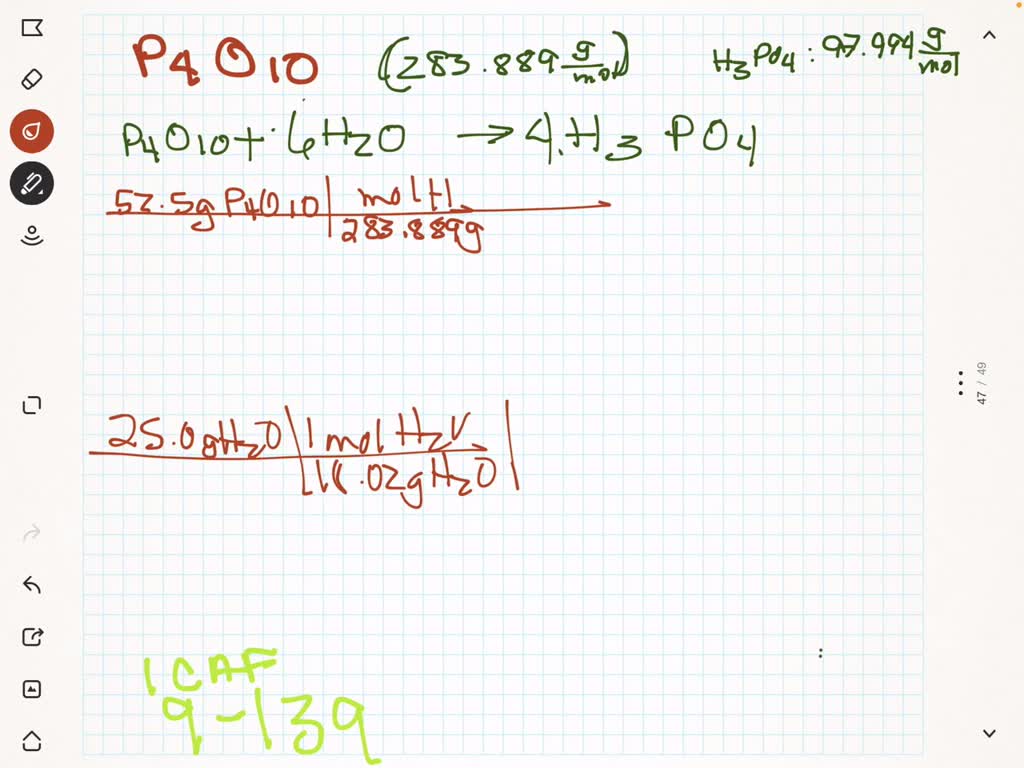 P4O10 (283.889 g/mol) H3PO4: 97.994 g/mol
P4O10 + 6H2O → 4.H3PO4
52.5g P4O10 | mol H
283.889g
25.0gH2O | 1 mol H2
18.02gH2O
ICAF
9-139
47 / 49